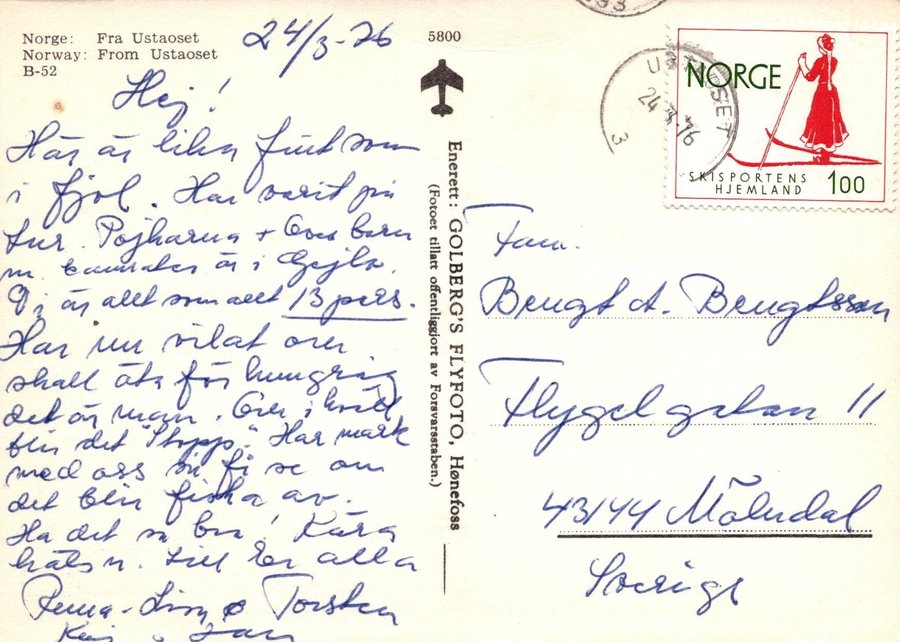 Norge: Fra Ustaoset
Norway: From Ustaoset
B-52
24/3-76
5800
Hej!
Här är lika fint som
i fjol. Har varit på
tur. Pojkarna + barn
m. är i
Vi är allt som allt 13 pers.
Har nu vilat oss
skall äta för hungrig
det är man. i kväll
blir det "Stopp". Har
med oss så få se om
det blir fiska av.
Ha det så bra! Kära
hälsn. till Er alla
Torsten
Enerett: GOLBERG'S FLYFOTO, Hønefoss
(Fotoet tillatt offentliggjort av Forsvarsstaben.)
USTAOSET
24.3.76
3
NORGE
SKISPORTENS
HJEMLAND
100
Fam.
Bengt A. Bengtsson
Flygelgatan 11
43144 Mölndal
Sverige